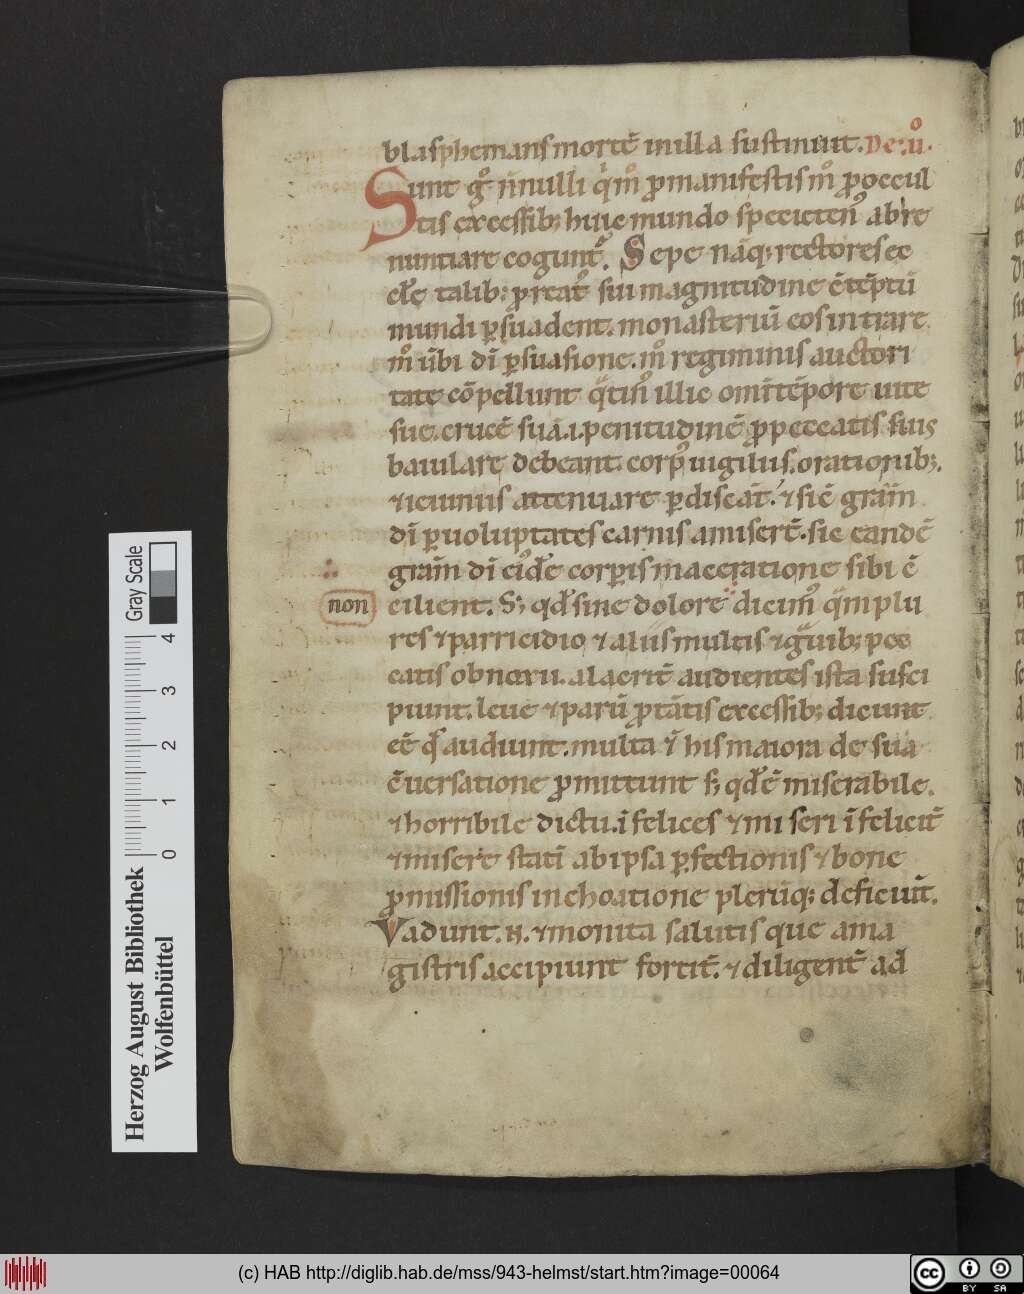 blasphemans mortē in illa sustinuit. De .ū.
Sunt gͦ n̄nulli qͥ mͦ ꝓ manifestis mͦ ꝓ occul
tis excessib; huic mundo specieten̄ ab re
nuntiare cogunt᷑. Sepe nāq; rectores ec
cłe talib; p̄tat᷑ sui magnitudine ētēptū
mundi ꝑsuadent. monasteriū eos intrare
mͦ ūbi dī ꝑsuasione. mͦ regiminis auctori
tate cōpellunt qͣtin᷒ illic om̄i tēpore uite
sue. crucē suā .i. penitudinē ꝓ peccatis suis
baiulare debeant. corp᷒ uigiliis. orationib;.
⁊ ieiuniis attenuare ꝑdiscāt. ⁊ sic̄ grām
dī ꝑ uoluptates carnis amisert̄. sic eandē
grām dī ei᷒dē corꝑis maceratione sibi c̄
non
cilient. S; qd̄ sine dolore dicim᷒ qͣmplu
res ⁊ parricidio ⁊ aliis multis ⁊ gͣuib; pec
catis obnoxii. alacrit̄ audientes ista susci
piunt. leue ⁊ parū ꝓ tātis excessib; dicunt
eē qd̄ audiunt. multa ⁊ his maiora de sua
c̄uersatione ꝓmittunt s; qd̄ ē miserabile.
⁊ horribile dictu. īfelices ⁊ miseri īfelicit̄
⁊ misere statī ab ipsa ꝑfectionis ⁊ bone
ꝓmissionis inchoatione plerūq; deficiūt.
Vadunt .n. ⁊ monita salutis que a ma
gistris accipiunt fortit̄. ⁊ diligent̄ ad
Herzog August Bibliothek
Wolfenbüttel
Gray Scale
0 1 2 3 4
(c) HAB http://diglib.hab.de/mss/943-helmst/start.htm?image=00064
cc BY SA